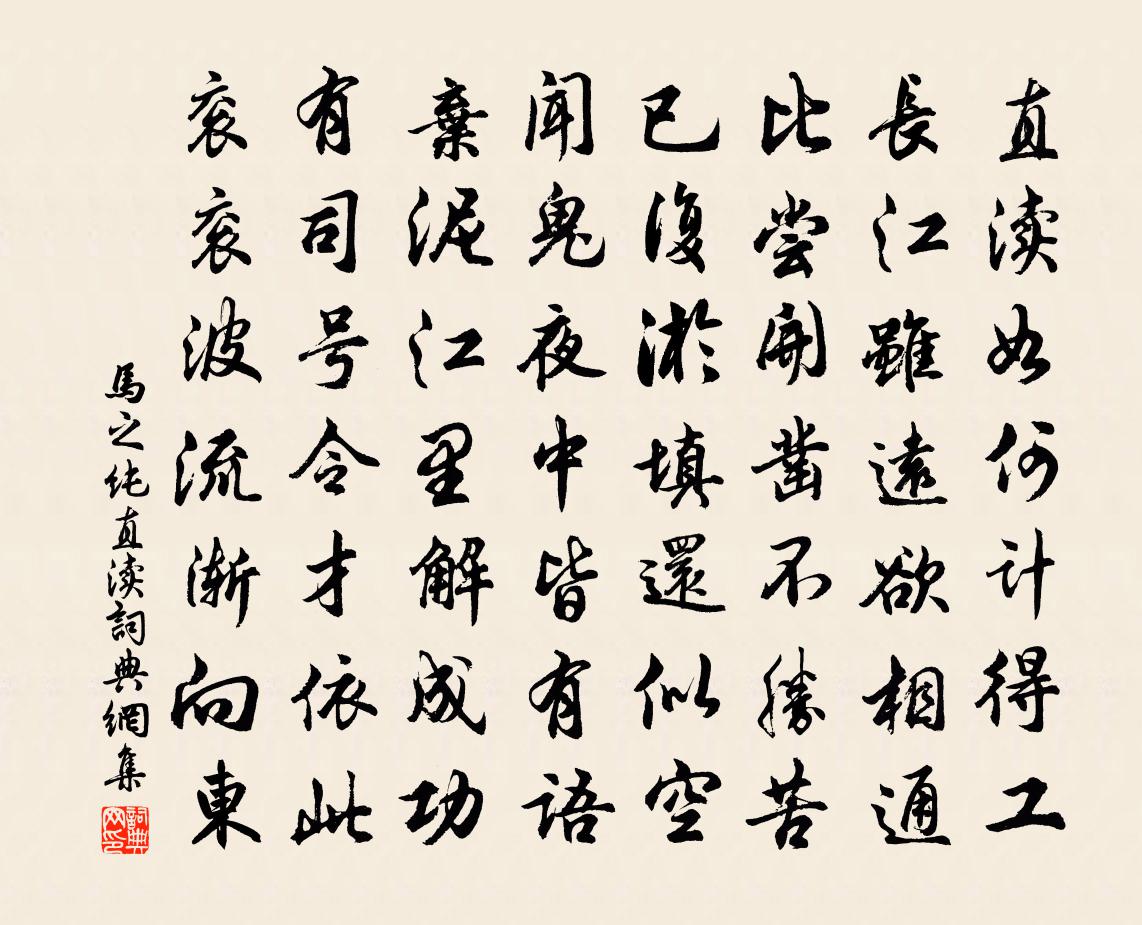 直渎如何計得工
長江雖遠欲相通
比尝開凿不勝苦
已復淤填還似空
闻鬼夜中皆有語
棄泥江里解成功
有司号令才依此
衮衮波流渐向東
馬之纯直渎詞典網集
詞典網印